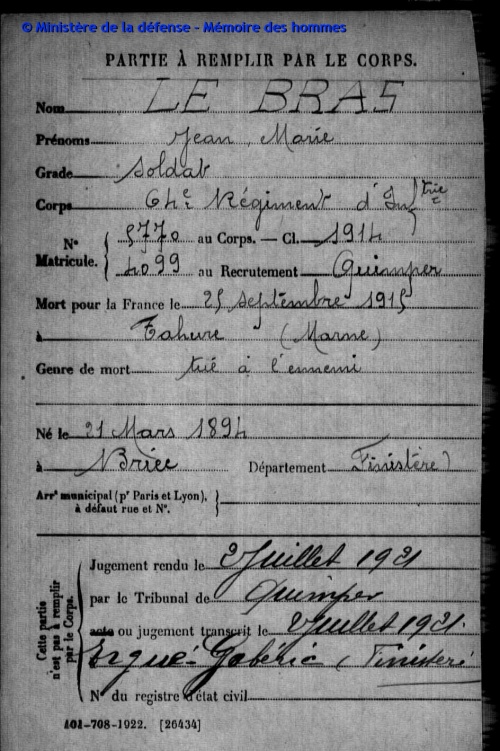 © Ministère de la défense - Mémoire des hommes
PARTIE À REMPLIR PAR LE CORPS.
Nom LE BRAS
Prénoms Jean Marie
Grade Soldat
Corps 64e Régiment d'Inftrie
N° Matricule. { 5770 au Corps. — Cl. 1914
4099 au Recrutement Quimper
Mort pour la France le 25 septembre 1915
à Tahure (Marne)
Genre de mort tué à l'ennemi
Né le 21 Mars 1894
à Briec Département Finistère
Arrt municipal (pr Paris et Lyon), }
à défaut rue et N°.
Cette partie n'est pas à remplir par le Corps.
Jugement rendu le 2 Juillet 1921
par le Tribunal de Quimper
acte ou jugement transcrit le 2 Juillet 1921.
Ergué-Gabéric (Finistère
N° du registre d'état civil
101-708-1922. [26434]